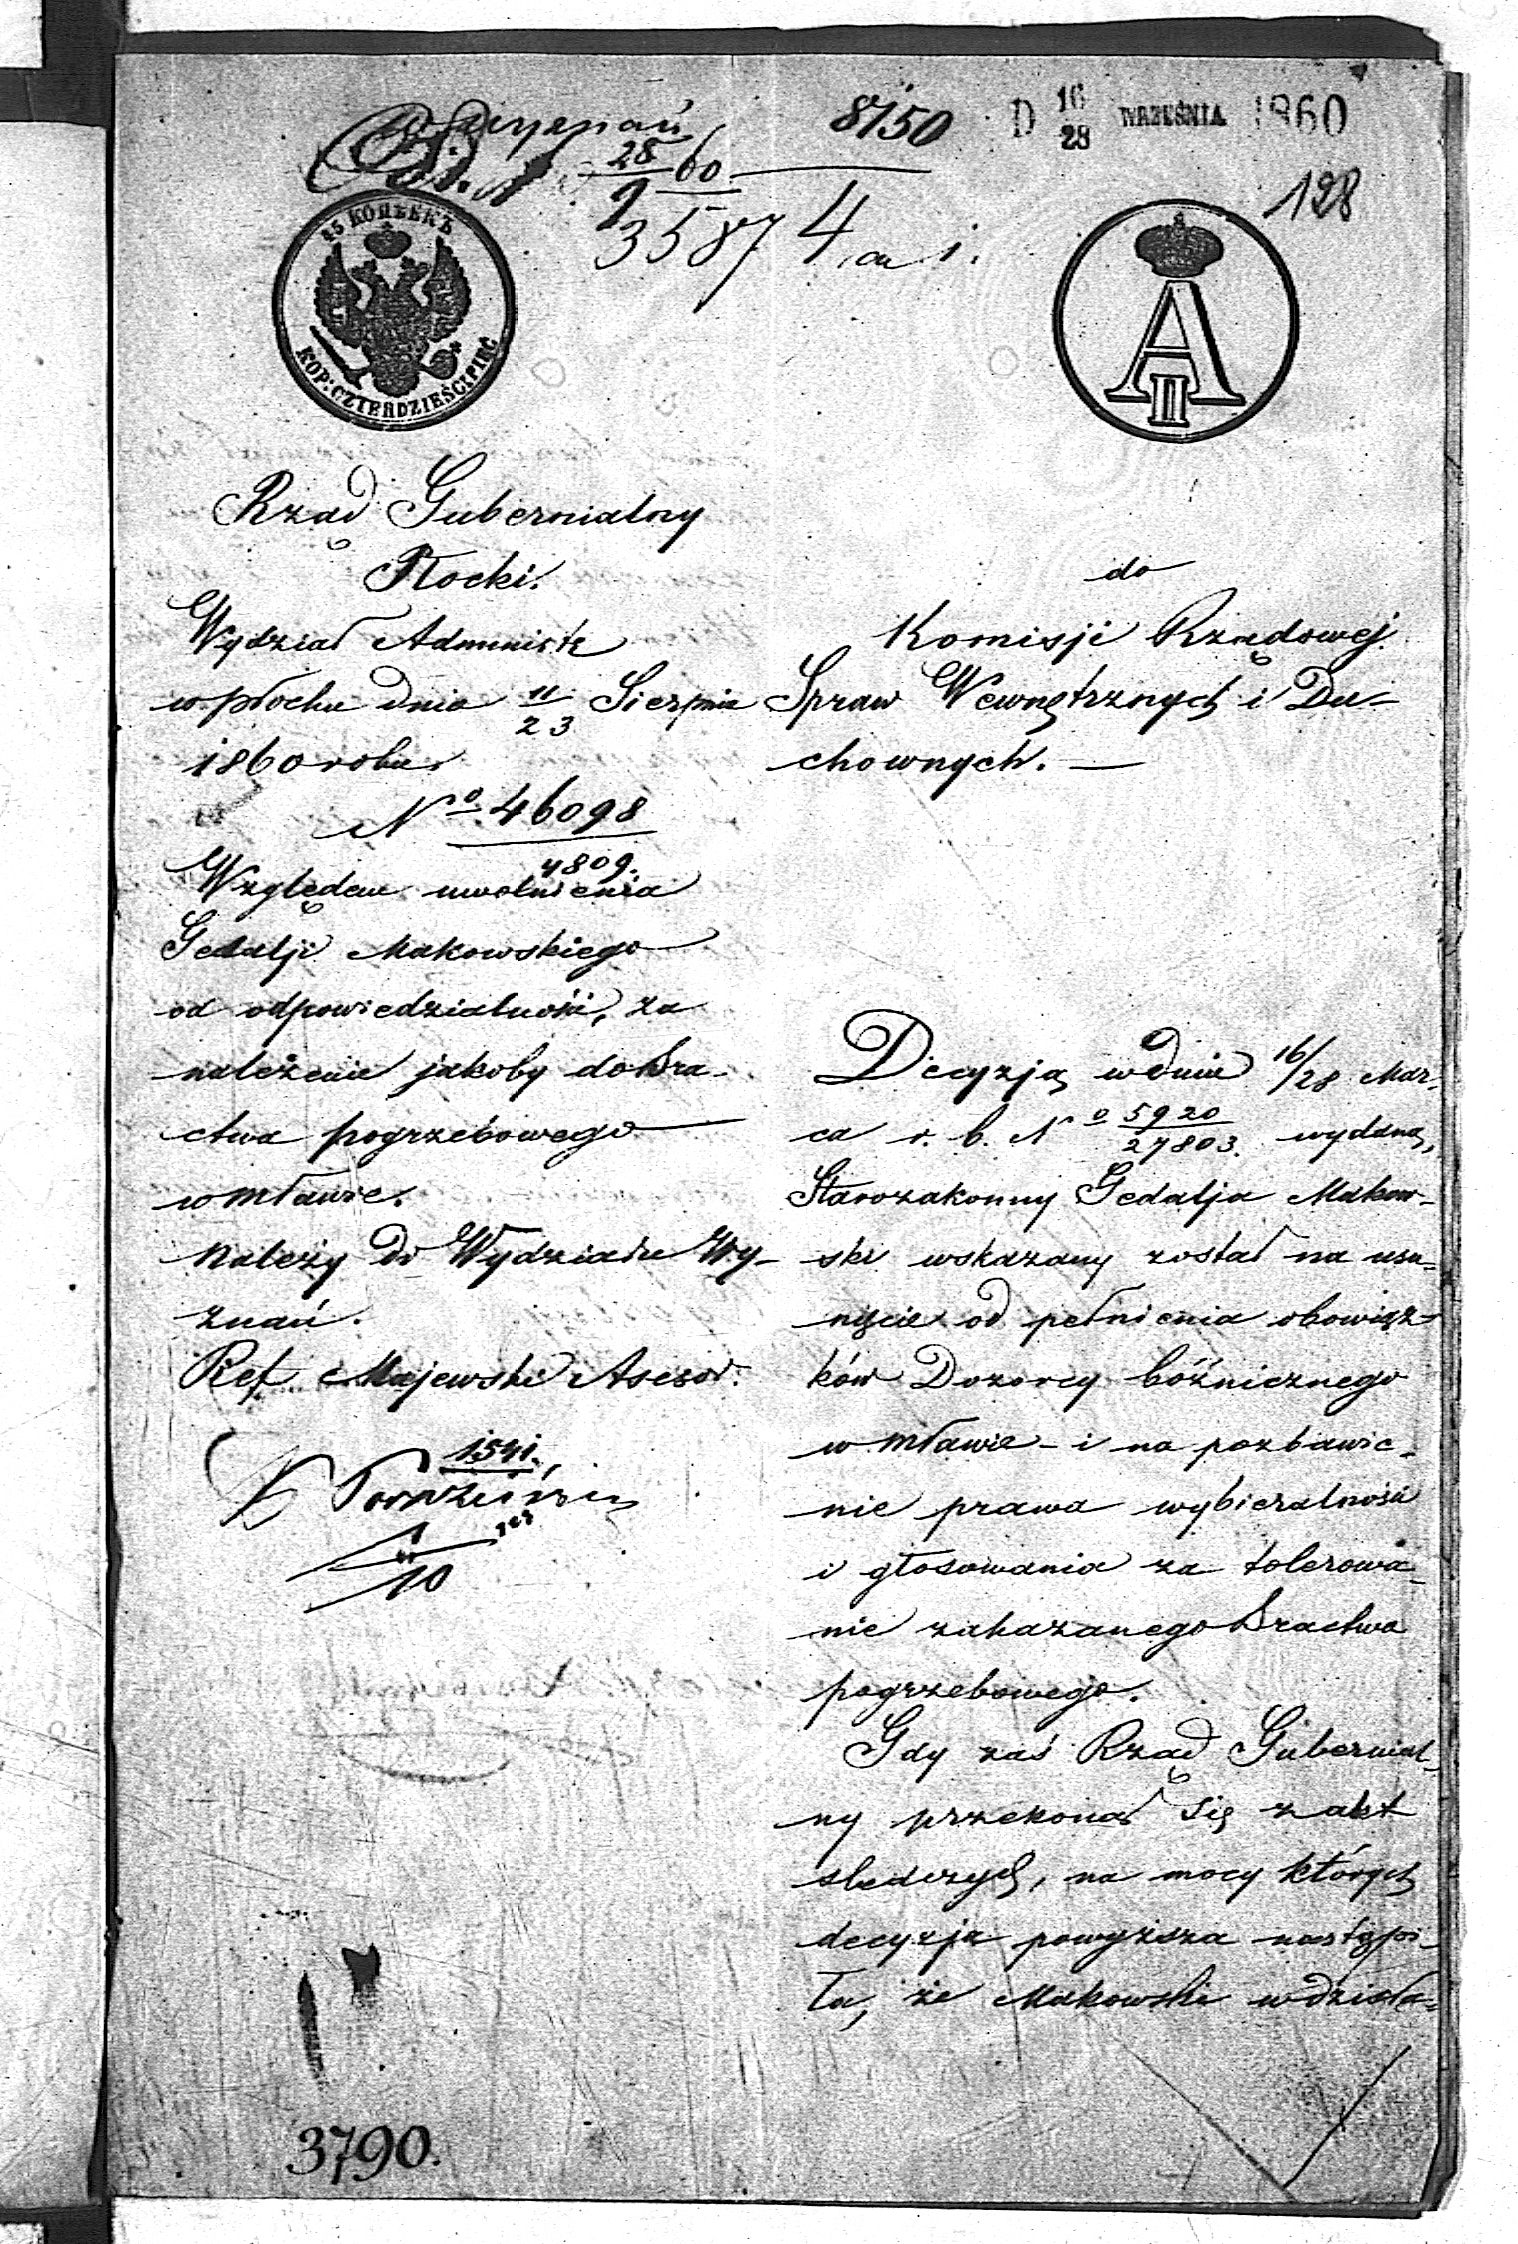 8750 D 16/28 WRZEŚNIA 1860
28/9 60
128
35874
45 КОПѢЕКЪ
KOP: CZTERDZIEŚCI PIĘĆ
A II
Rząd Gubernialny
Płocki.
Wydział Administr
w Płocku dnia 11/23 Sierpnia
1860 roku
No. 46098/4809.
Względem uwolnienia
Gedalji Makowskiego
od odpowiedzialności, za
należenie jakoby do Bra-
ctwa pogrzebowego
w Mławie.
Należy do Wydziału Wy-
znań.
Ref. Majewski Asesor.
1541.
10
3790.
do
Komisji Rządowej
Spraw Wewnętrznych i Du-
chownych. —
Decyzją w dniu 16/28 Mar-
ca r. b. No 5920/27803. wydaną,
Starozakonny Gedalja Makow-
ski wskazany został na usu-
nięcie od pełnienia obowiąz-
ków Dozorcy bóźnicznego
w Mławie - i na pozbawie-
nie prawa wybieralności
i głosowania za tolerowa-
nie zakazanego Bractwa
pogrzebowego.
Gdy zaś Rząd Gubernial-
ny przekonał się z akt
sledczych, na mocy których
decyzja powyższa nastąpi-
ła, że Makowski w działa-